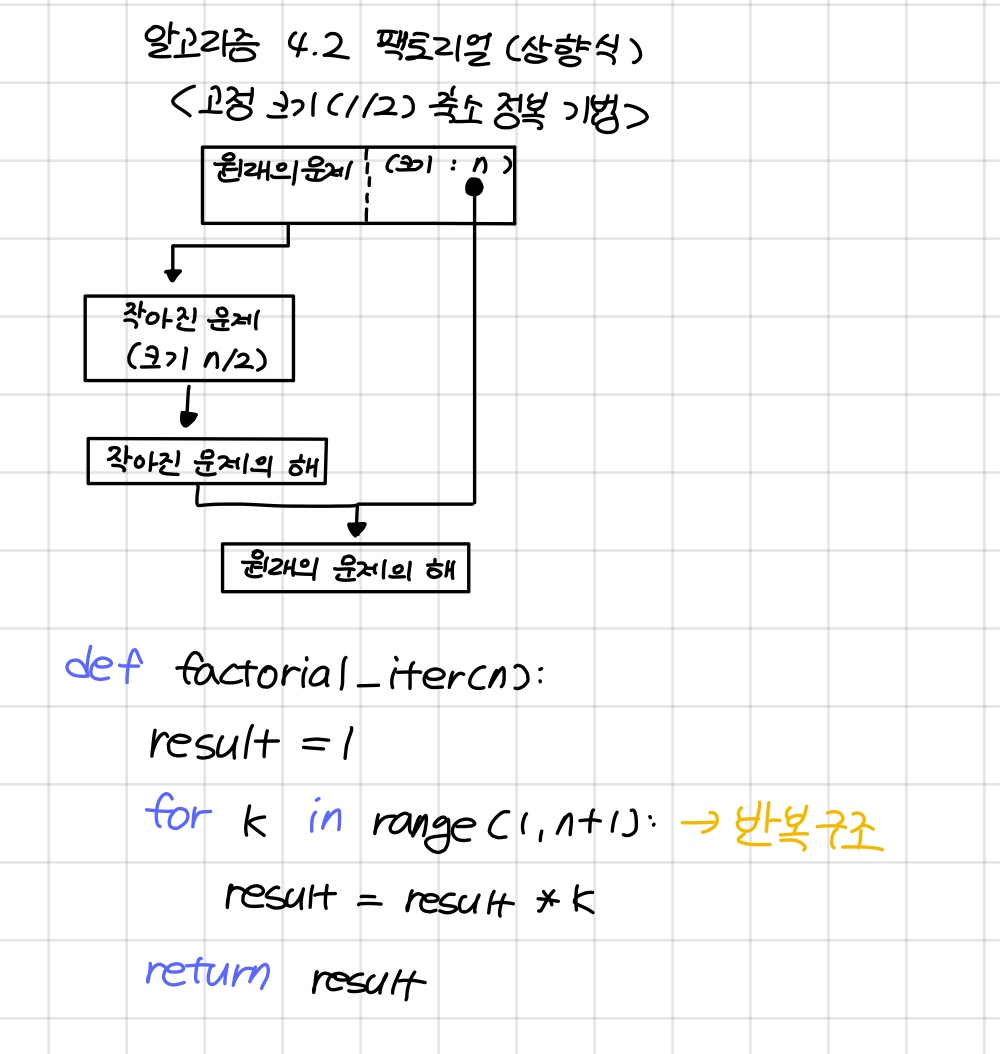 알고리즘 4.2 팩토리얼 (상향식)
<고정 크기(1/2) 축소 정복 기법>
원래의 문제 (크기 : n)
작아진 문제
(크기 n/2)
작아진 문제의 해
원래의 문제의 해
def factorial_iter(n):
result = 1
for k in range(1, n+1): → 반복구조
result = result * k
return result